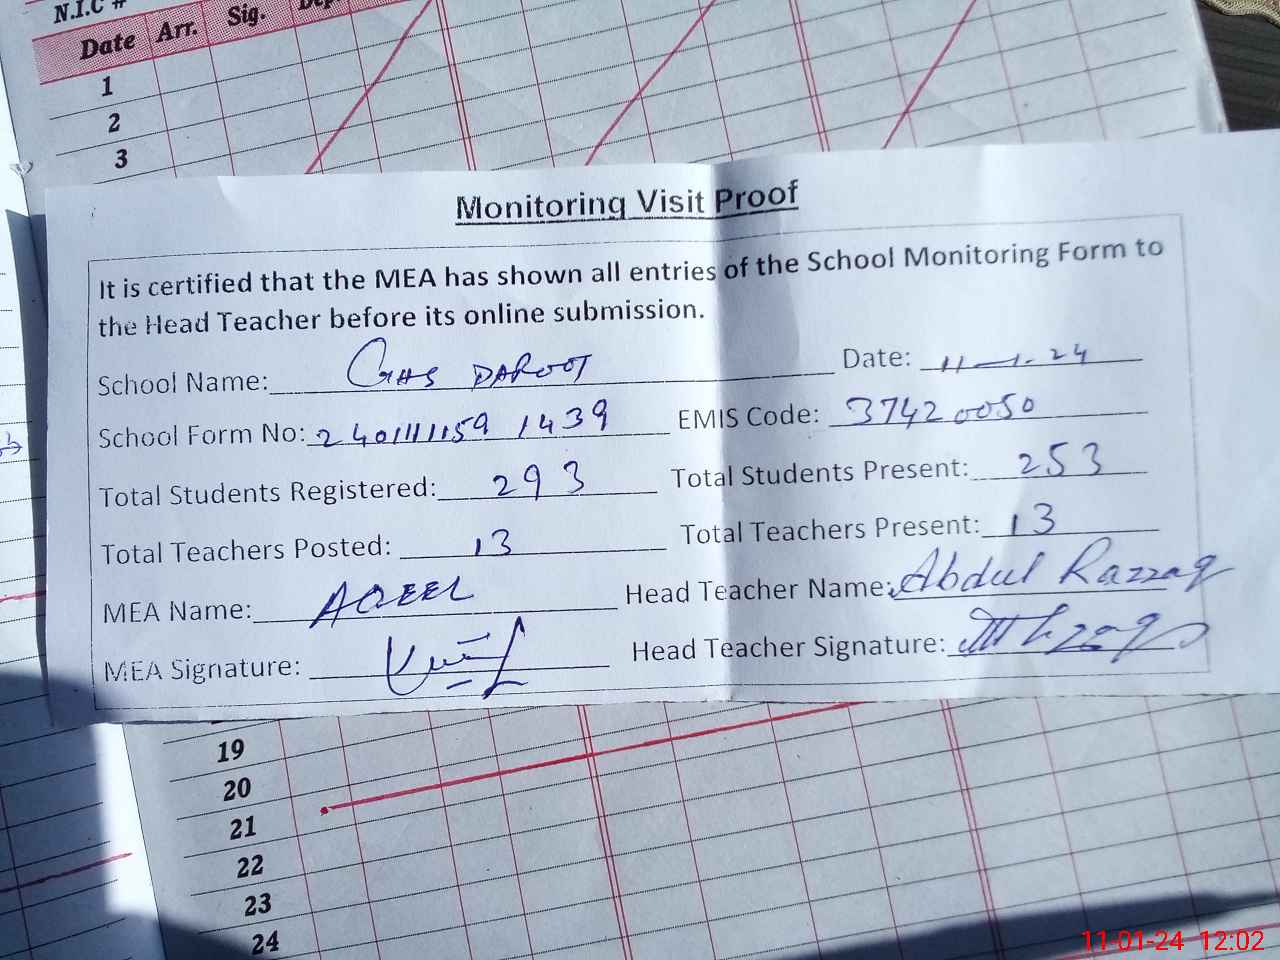 N.I.C #
Date Arr. Sig.
1
2
3
Monitoring Visit Proof
It is certified that the MEA has shown all entries of the School Monitoring Form to
the Head Teacher before its online submission.
School Name: GHS DAROOT Date: 11-1-24
School Form No: 240111159 1439 EMIS Code: 37420050
Total Students Registered: 293 Total Students Present: 253
Total Teachers Posted: 13 Total Teachers Present: 13
MEA Name: AQEEL Head Teacher Name: Abdul Razzaq
MEA Signature: Head Teacher Signature:
19
20
21
22
23
24
11-01-24 12:02